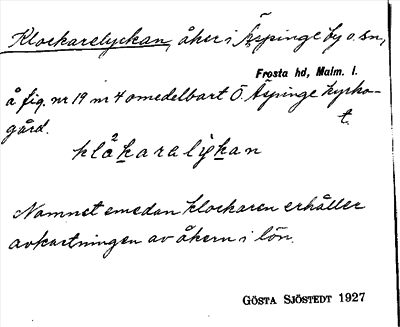 Klockarelyckan, åker i Äspinge by o. sn,
Frosta hd, Malm. l.
å fig. nr 19 nr 4 omedelbart Ö. Äspinge kyrko-
gård.
t.
Namnet emedan klockaren erhåller
avkastningen av åkern i lön.
GÖSTA SJÖSTEDT 1927